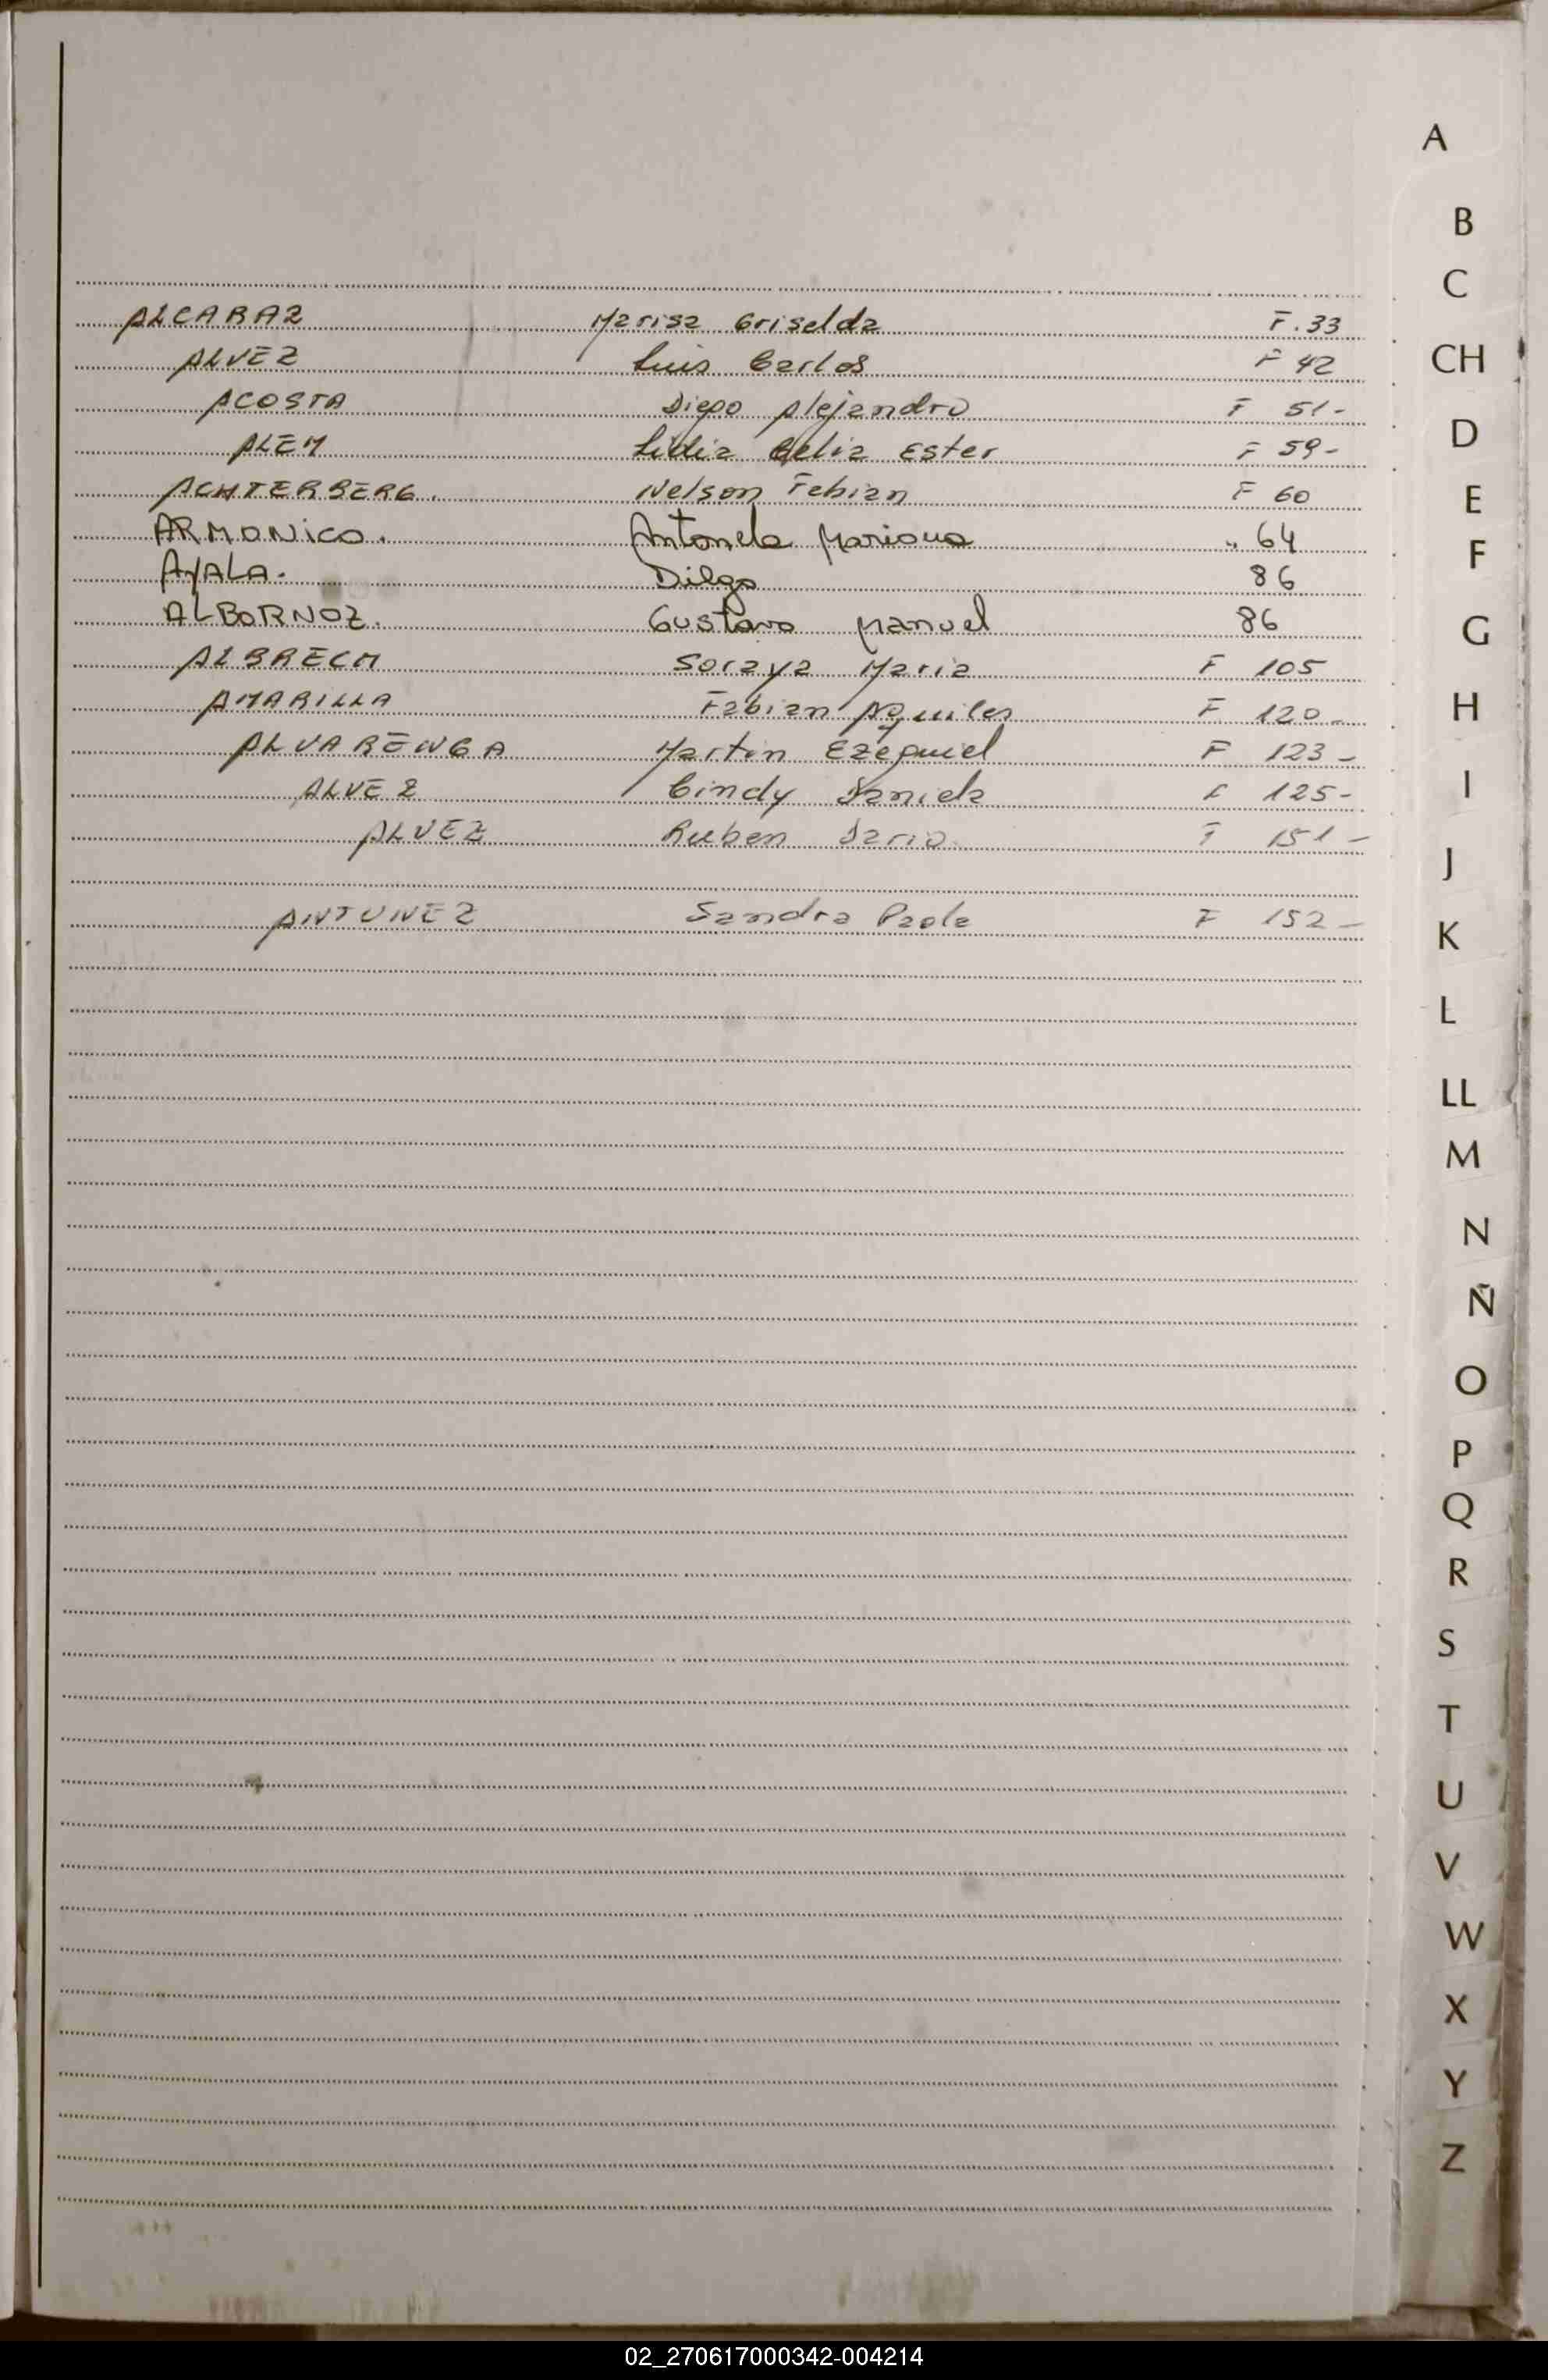 ALCARAZ Marisa Griselda F. 33
ALVEZ Luis Carlos F 42
ACOSTA Diego Alejandro F 51-
ALEM Lidia Celia Ester F 59-
ACHTERBERG. Nelson Fabian F 60
ARMONICO. Antonela Mariana " 64
AYALA. Diego 86
ALBORNOZ. Gustavo Manuel 86
ALBRECH Soraya Maria F 105
AMARILLA Fabian Aquiles F 120-
ALVARENGA Martin Ezequiel F 123-
ALVEZ Cindy Daniela F 125-
ALVEZ Ruben Dario. F 151-
ANTUNEZ Sandra Paola F 152-
A
B
C
CH
D
E
F
G
H
I
J
K
L
LL
M
N
Ñ
O
P
Q
R
S
T
U
V
W
X
Y
Z
02_270617000342-004214